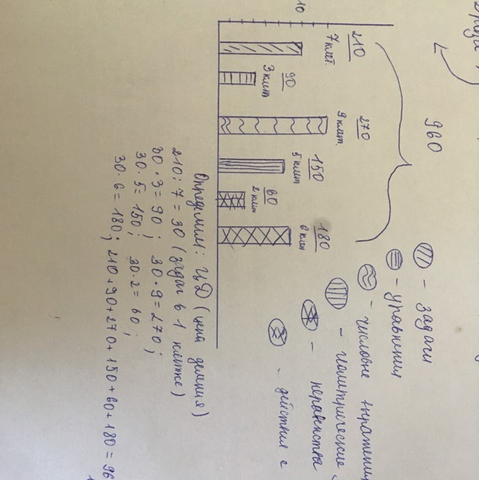 960
210
90
270
150
60
180
7 клет.
3 клет
9 клет
5 клет
2 клет
6 клет
10
- задачи
- уравнения
- числовые выражения
- геометрические
- неравенства
- действия с
Определим: ЦД (цена деления)
210 : 7 = 30 (задач в 1 клетке)
30 · 3 = 90; 30 · 9 = 270;
30 · 5 = 150; 30 · 2 = 60;
30 · 6 = 180; 210 + 90 + 270 + 150 + 60 + 180 = 96